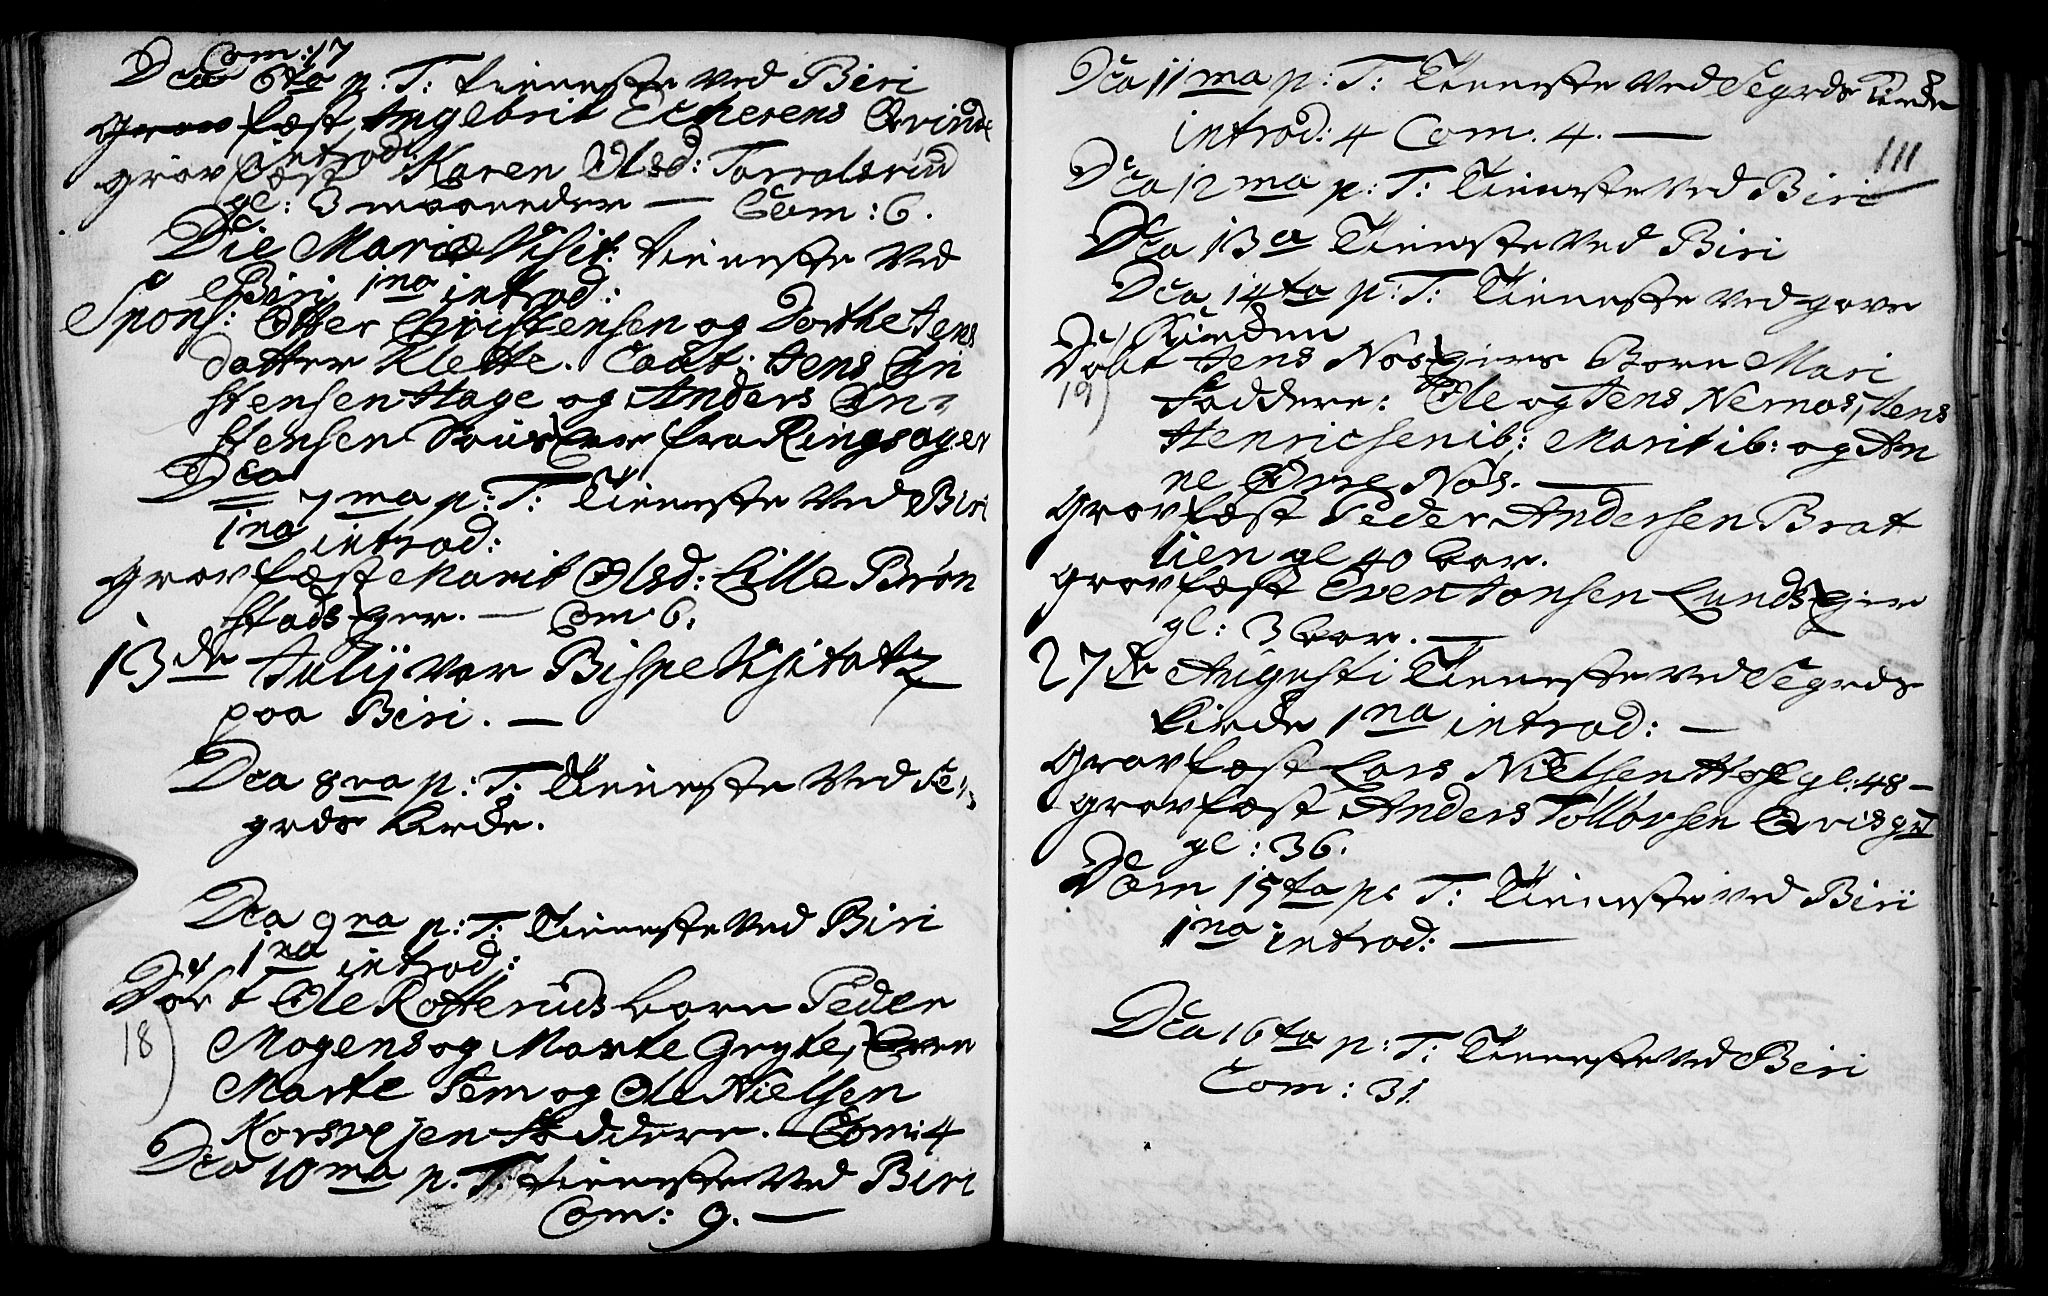 Com: 17
Dca 6ta p. T: tieneste ved Biri
grav fæst Angebrit Echerens Qvinde
introd:
grav fæst Karen Olsd: Torralsrud
gl: 3 maaneder — Com: 6.
Die Mariæ Visit: tieneste ved
Biri 1na introd:
Spons: Otter Christensen og Dorthe Jens
datter Klette. Caut: Jens Chri
stensen Hage og Anders Chri-
stensen fra Ringsager
Dca 7ma p: T: Tieneste ved Biri
1na introd:
grav fæst Marit Olsd: Lille Brøn
stads eyer. — Com 6.
13de Julij var Bispe Visitatz
paa Biri. —
Dca 8va p: T: Tieneste ved Se-
grds Kirke.
Dca 9na p: T: Tieneste ved Biri
1na introd:
Døbt Ole Rotteruds barn Peder
18)
Mogens og Marte Gryte,
Marte Sem og Ole Nielsen
Korsvejen faddere. Com: 4
Dca 10ma p. T: tieneste ved Biri
Com: 9. —
Dca 11ma p: T: Tieneste ved Segrds Kirke
introd: 4 Com. 4. —
111
Dca 12ma p: T: Tieneste ved Biri
Dca 13a Tieneste ved Biri
Dca 14ta p: T: Tieneste ved
Kirken
Døbt Jens Nøs eyers Barn Mari
19)
Faddere: Ole og Jens Nernøs, Jens
Henrichsen ib: Marit ib: og An
ne Øvre Nøs. —
Grav fæst Peder Andersen Brat
lien gl 40 aar.
grav fæst Even Jonsen Lunds eyer
gl: 3 aar. —
27de Augusti Tieneste ved Segrds
Kirke 1na introd: —
grav fæst Lars Nielsen gl: 48 —
grav fæst Anders Tollovsen
gl: 36.
Dom 15ta p: T: Tieneste ved Biri
1na introd: —
Dca 16ta p: T: Tieneste ved Biri
Com: 31.